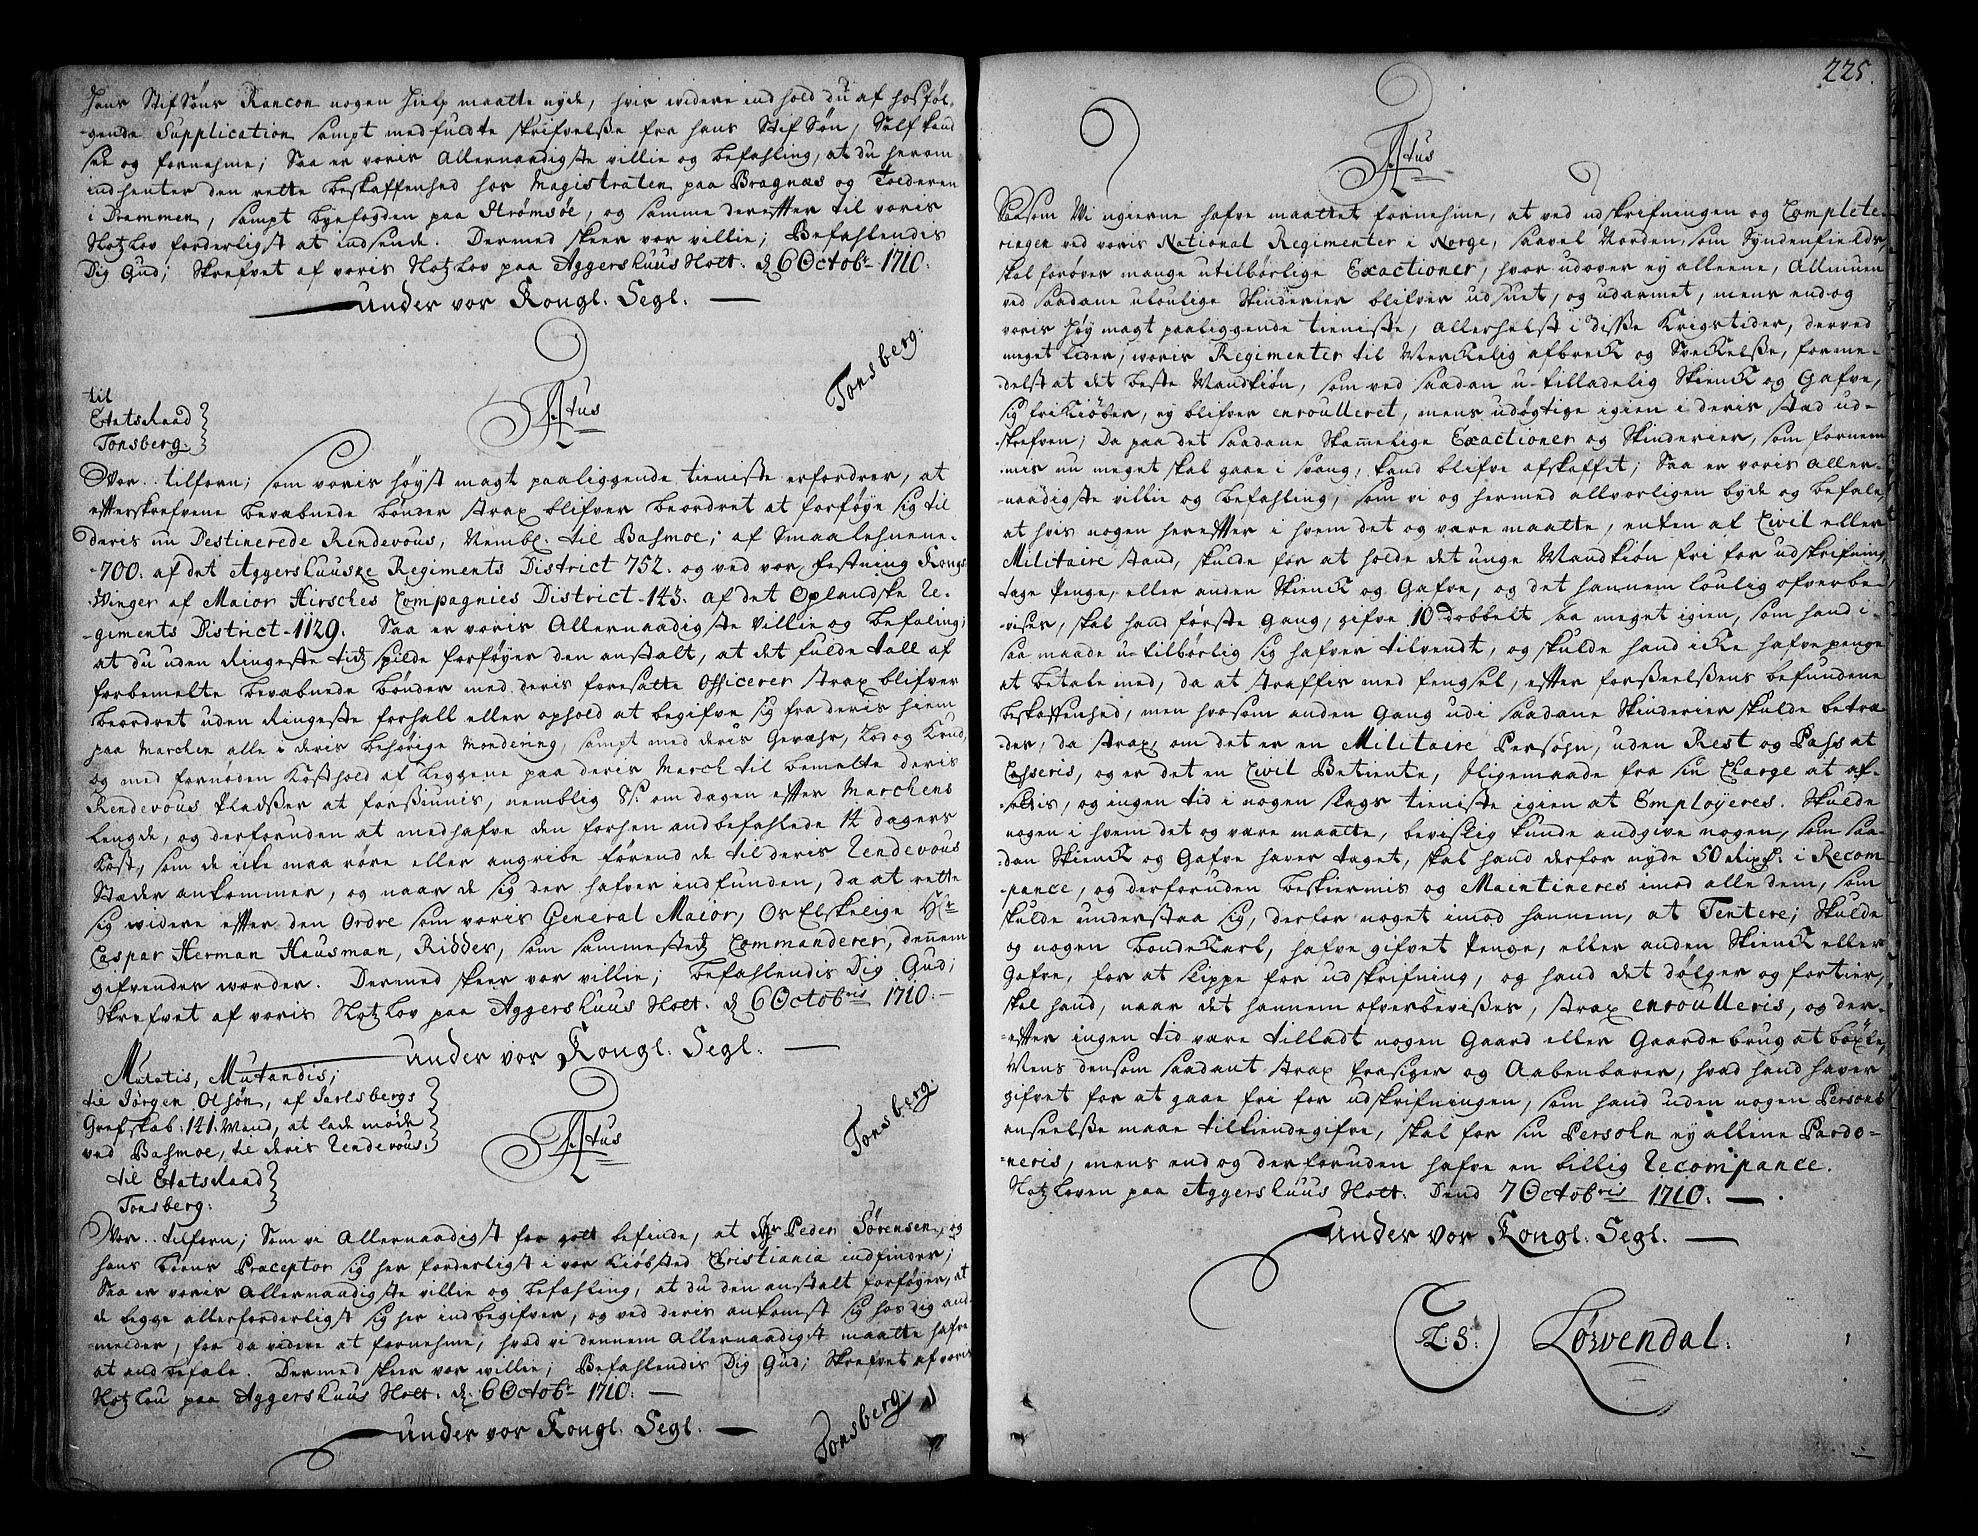 hans Stif Søns Rancon nogen Hielp maatte nyde, hvis widere indhold du af hosføl-
gende Supplication sampt medfuldte skrifvelse fra hans Stif Søn, Self kand
see og fornehme; Saa er voris Allernaadigste villie og befahling, at du herom
indhenter den rette beskaffenhed hos Magistraten paa Bragnæs og Tolderen
i Drammen, sampt byefogden paa Strømsøe, og samme derefter til voris
Slotzlov forderligst at indsende. Dermed skeer vor villie; Befahlendis
Dig Gud; Skrefvet af voris Slotzlov paa Aggershuus Slott. d. 6 Octobr. 1710.
under vor Kongl. Segl.
Tonsberg.
til
Etatsraad
Tonsberg.
F 4tus
Vor.. tilforn; som voris høyst magt paaliggende tieniste erfordrer, at
efterskrefvene bevæbnede bønder strax blifver beordret at forføye sig til
deris nu Destinerede Rendevous, Nembl. til Basmoe; af Smaalehnene.
700. af det Aggershuuske Regiments District 752. og ved vor festning Kongs
Winger af Maior Hirsches Compagnies District 143. af det Oplandske Re-
giments District 1129. Saa er voris Allernaadigste Villie og befaling;
at du uden Ringeste tidtz spilde forføyer den anstalt, at det fulde tall af
forbemelte bevæbnede bønder med deris foresatte Officerer strax blifver
beordret uden Ringeste forhall eller ophold at begifve sig fra deris hiem
paa Marchen alle i deris behørige Mondering, sampt med deris Gevæhr, Lod og Krud,
og med fornøden Kosthold af Leggene paa deris March til bemelte deris
Rendevous Pladsser at forsiunis, nemblig 8 s. om dagen efter Marchens
Lengde, og derforuden at medhafve den forhen anbefahlede 14 dagers
Kost, som de icke maa røre eller angribe førend de til deris Rendevous
Stæder ankommer, og naar de sig der hafver indfunden, da at rette
sig widere efter den Ordre som voris General Maior, Os Elskelige Hr.
Caspar Herman Hausman, Ridder, som sammestedtz Commanderer, dennem
gifvendes worder. Dermed skeer vor villie; befahlendis Dig Gud;
Skrefvet af voris Slotzlov paa Aggershuus Slott. d. 6 Octobris 1710.
under vor Kongl. Segl.
Mutatis, Mutandis;
til Jørgen Olsøn, af Jarlsbergs
Grefskab: 141. Mand, at lade møde
ved Basmoe, til deris Rendevous.
Tonsberg.
til Etatsraad
Tonsberg.
F 4tus
Vor.. tilforn; Som vi Allernaadigst for gott befinde, at Hr Peder Sørensen, og
hans børns Præceptor sig her forderligst i vor Kiøbsted Christiania indfinder;
Saa er voris Allernaadigste villie og befahling, at du den anstalt forføyer, at
de begge allerforderligst sig her indbegifver, og ved deris ankomst sig hos dig an-
melder, for da videre at fornehme, hvad vi dennem Allernaadigst maatte hafve
at andbefale. Dermed skeer vor willie; Befahlendis Dig Gud; Skrefvet af voris
Slotzlou paa Aggershuus Slott. d. 6 Octobr 1710.
under vor Kongl. Segl.
Tonsberg.
225.
F 4tus
Saasom Wi ugierne hafve maattet fornehme, at ved udskrifningen og Complete-
ringen ved voris National Regimenter i Norge, saavel Norden, som Syndenfields,
skal forøves mange utilbørlige Exactioner, hvor udover ey alleene, Allmuen
ved saadane ulovlige Skinderier blifver udsuet, og udarmet, mens endog
voris høy magt paaliggende tieniste, Allerhelst i disse Krigstider, derved
meget lider, voris Regimenter til Merckelig afbreck og Sveckelse, forme-
delst at det beste Mandkiøn, som ved saadan u-tilladelig Skienck og Gafve,
sig fri Kiøber, ey blifver enroulleret, mens udøgtige igien i deris stæd ud-
skrefven; Da paa det saadane Skammelige Exactioner og Skinderier, som fornem-
mis nu meget skal gaae i svang, kand blifve afskaffet; Saa er voris Aller-
naadigste villie og befahling, som vi og hermed allvorligen byde og befale,
at hvis nogen herefter i hvem det og være maatte, enten af Civil eller
Militaire stand, skulde for at holde det unge Mandkiøn fri for udskrifning,
tage Penge, eller anden Skienck og Gafve, og det hannem loulig ofverbe-
vises, skal hand første Gang, gifve 10 dobbelt saa meget igien, som hand i-
saa maade u-tilbørlig sig hafver tilvendt, og skulde hand icke hafve penge
at betale med, da at straffis med fengsel, efter forseelsens befundene
beskaffenhed, men hvosom anden Gang udi saadane Skinderier skulde betræ-
des, da strax, om det er en Militaire Persohn, uden Rest og Pass at
Casseris, og er det en Civil Betiente, Iligemaade fra sin Charge at af-
settis, og ingen tid i nogen slags tieniste igien at Employeres. Skulde
nogen i hvem det og være maatte, bevislig kunde angive nogen, som saa-
dan Skienck og Gafve haver taget, skal hand derfor nyde 50 Rixd. i Recom-
pance, og derforuden beskiermis og Maintineres imod alle dem, som
skulde understaa sig, derfor noget imod hannem, at Tentere; Skulde
og nogen bonde Karl, hafve gifvet Penge, eller anden Skienck eller
Gafve, for at slippe for udskrifning, og hand det dølger og fortier,
skal hand, naar det hannem ofverbevises, strax enroulleris, og der-
efter ingen tid være tilladt nogen Gaard eller Gaarde brug at böxle,
Mens densom saadant strax frasiger og Aabenbarer, hvad hand haver
gifvet for at gaae fri for udskrifningen, som hand uden nogen Persons
anseelse maae tilkiendegifve, skal for sin Persohn ey allene Pardo-
neris, mens end og derforuden hafve en billig Recompance.
Slotzloven paa Aggershuus Slott. Dend 7 Octobris 1710.
under vor Kongl. Segl.
L.S. Løwendal.